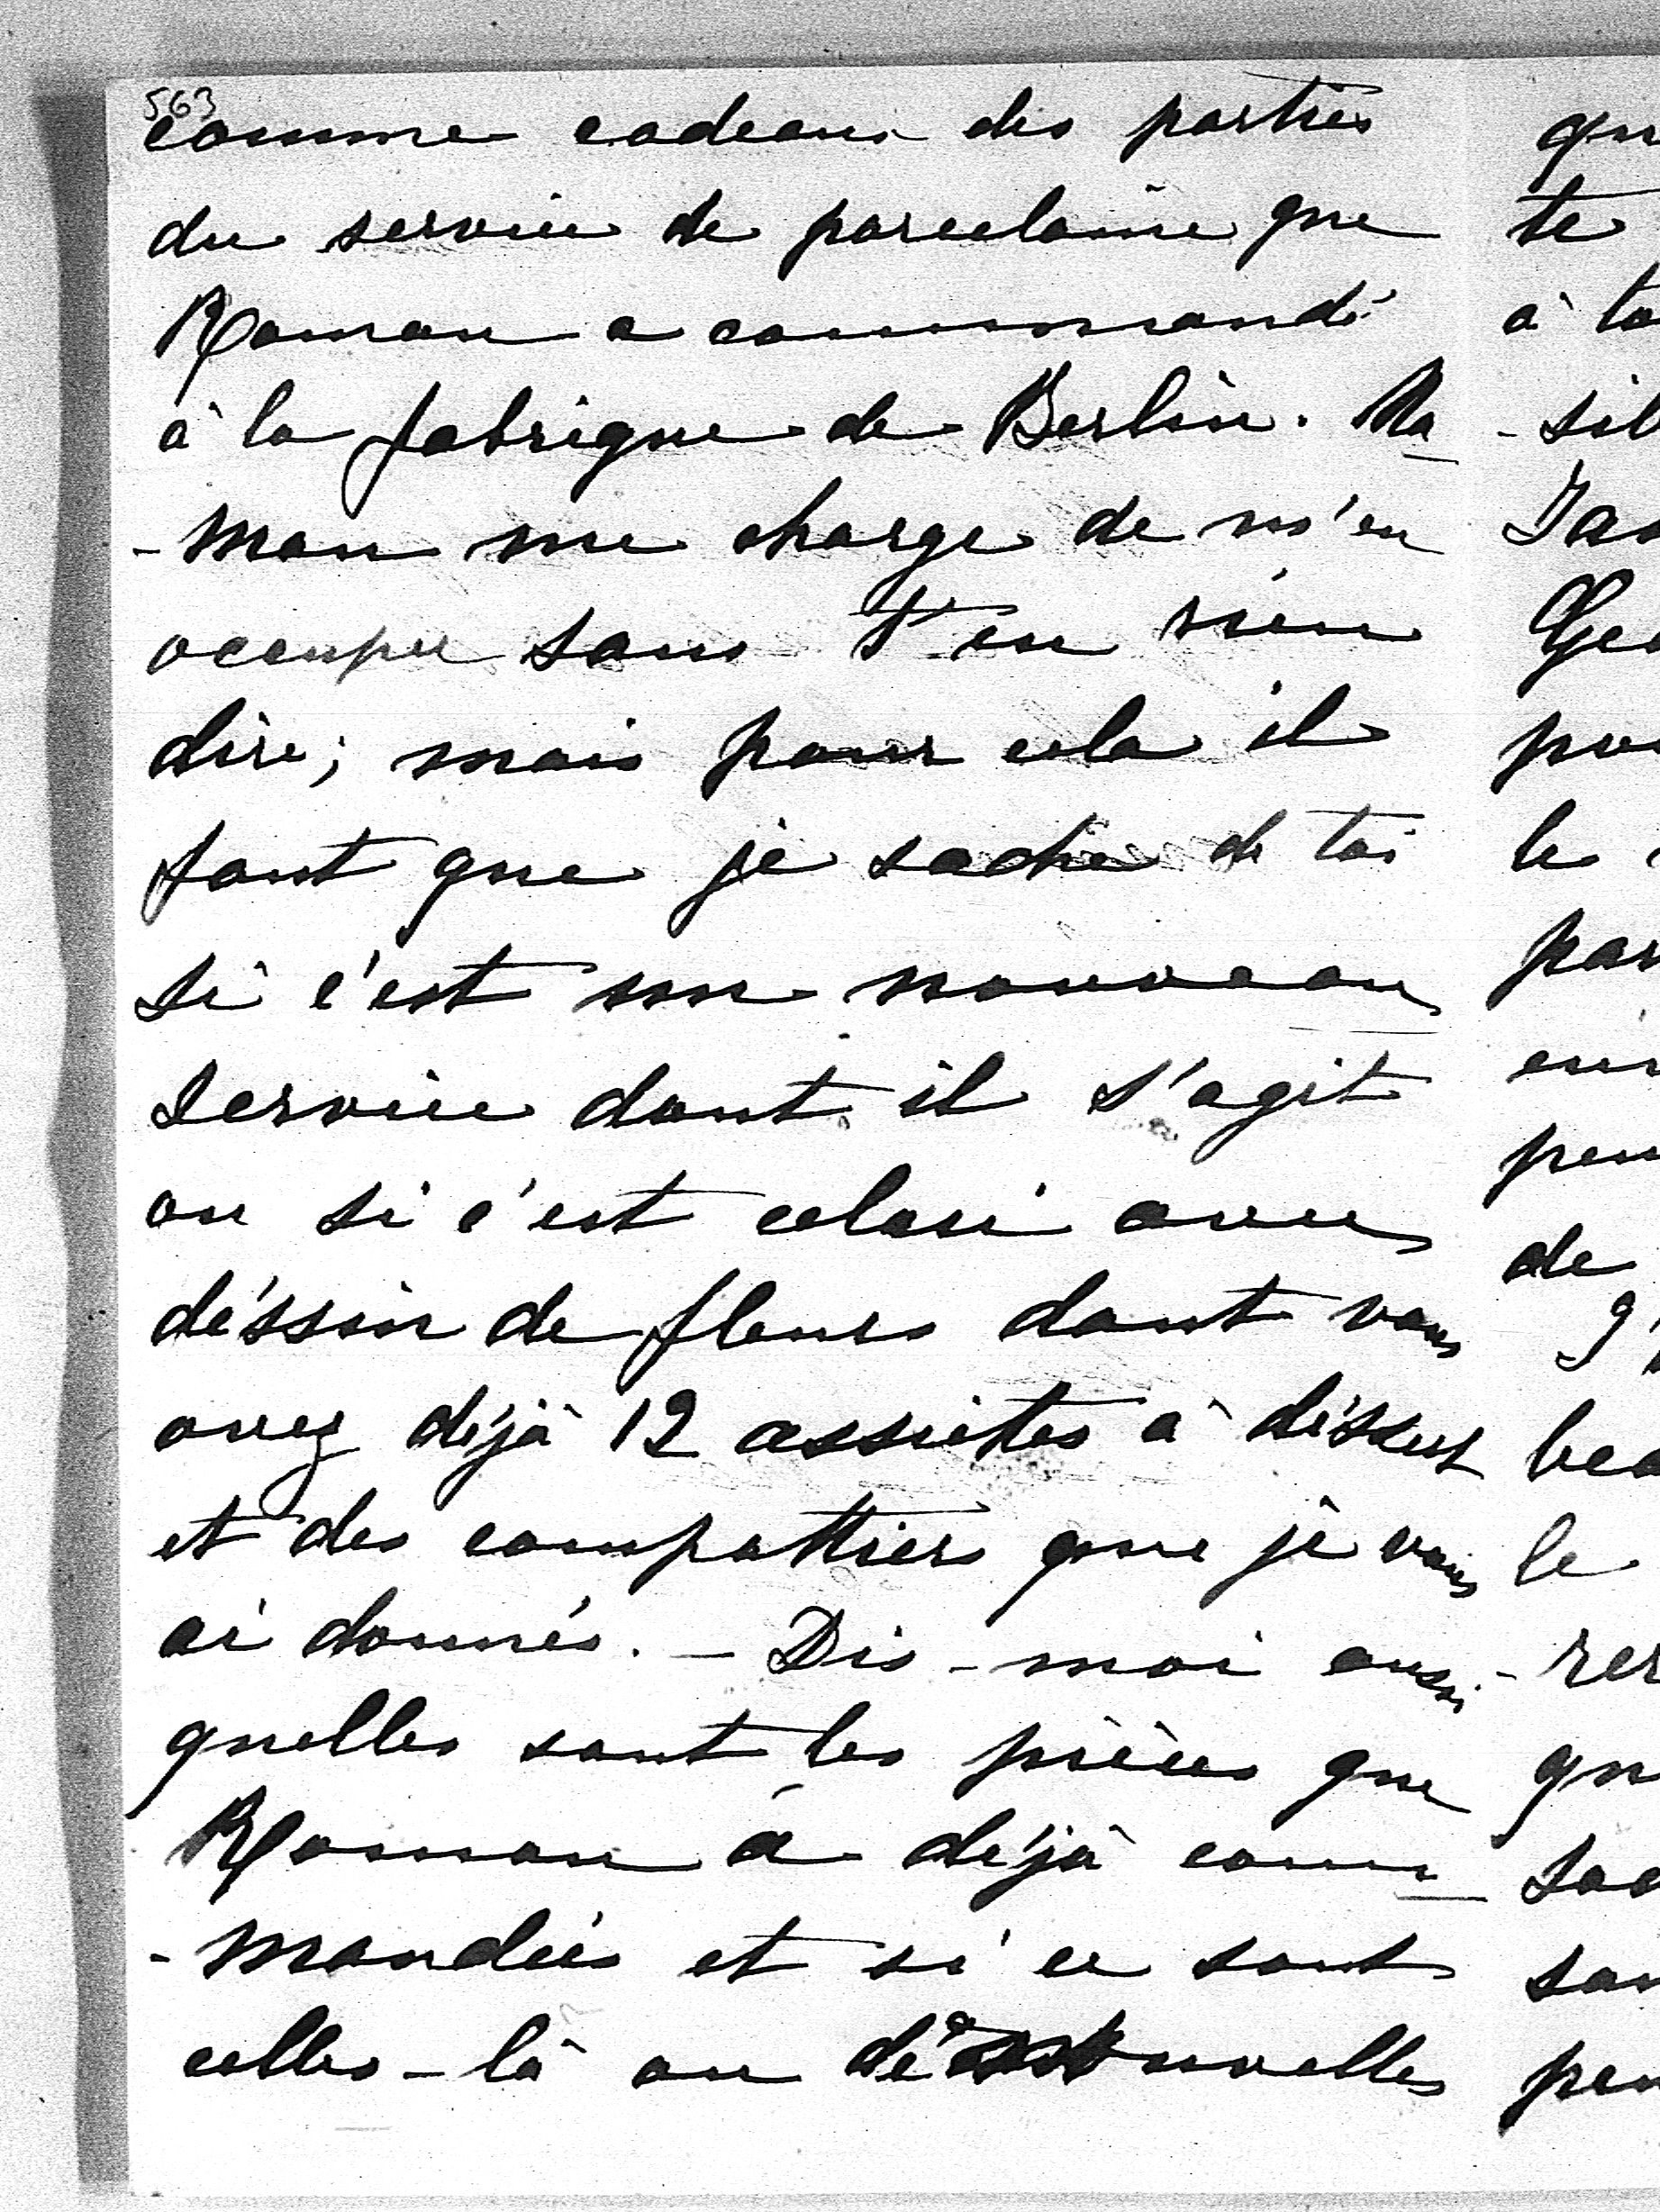 563
comme cadeau des parties
du service de porcelaine que
Roman a commandé
à la fabrique de Berlin. Ma
-man me charge de m'en
occuper sans t'en rien
dire; mais pour cela il
faut que je sache de toi
si c'est un nouveau
service dont il s'agit
ou si c'est celui avec
déssin de fleurs dont vous
avez déjà 12 assiettes à déssert
et des compottiers que je vous
ai donnés. — Dis-moi aussi
quelles sont les pièces que
Roman a déjà com
-mandées et si ce sont
celles-là ou de nouvelles
qu
te
à to
-sib
Jas
Geo
pou
le
par
en
peu
de
g'
bea
le
-rer
qu
sac
san
pen